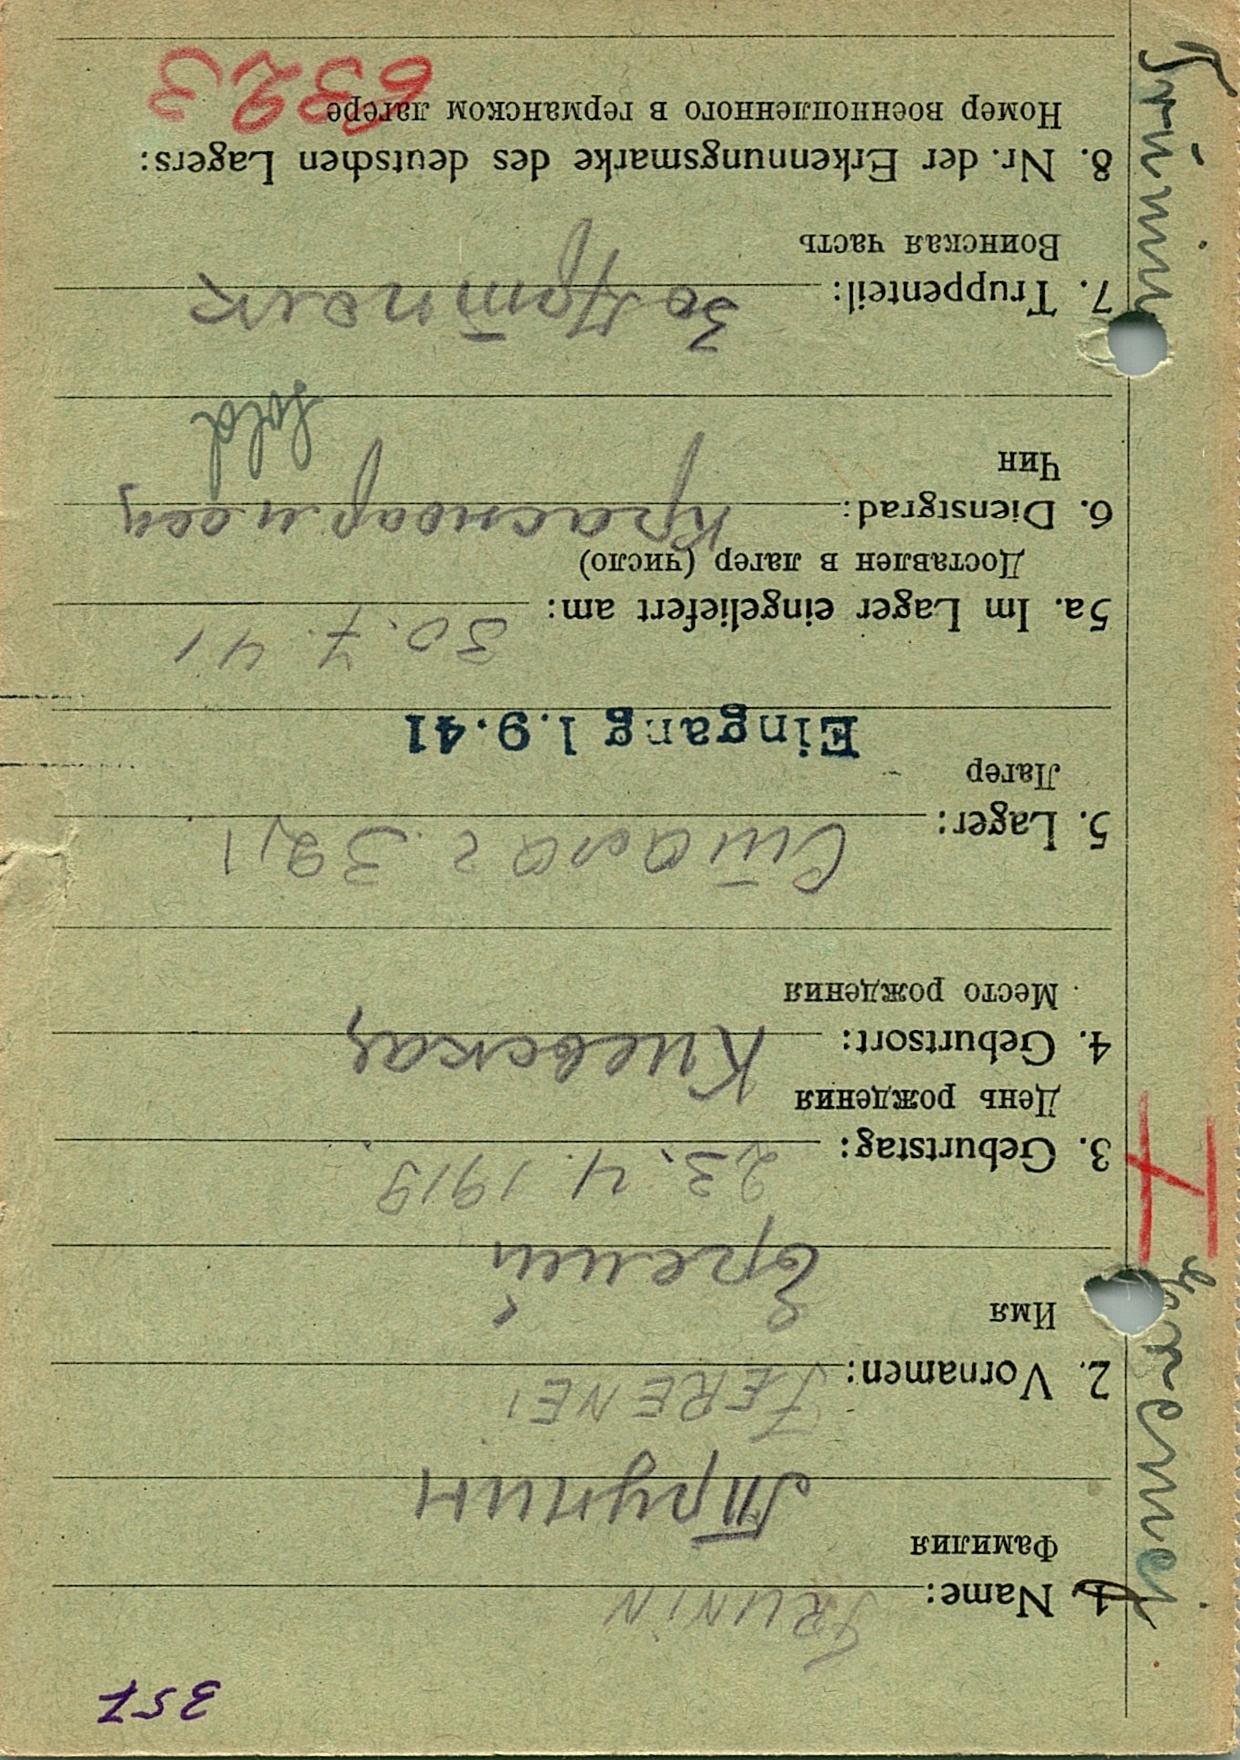 357
1. Name: TRUNIN
Фамилия
Трунин
2. Vornamen: JERENEI
Имя
Еремей
3. Geburtstag: 23. 4. 1919
День рождения
4. Geburtsort: Киевская
Место рождения
5. Lager: Сталаг 321
Лагер
Eingang 1.9.41
5a. Im Lager eingeliefert am: 30. 7. 41
Доставлен в лагер (число)
6. Dienstgrad: Красноармеец
Чин
Sold
7. Truppenteil: 30 Артполк
Воинская часть
8. Nr. der Erkennungsmarke des deutschen Lagers:
Номер военнопленного в германском лагере
6323
Jeremej